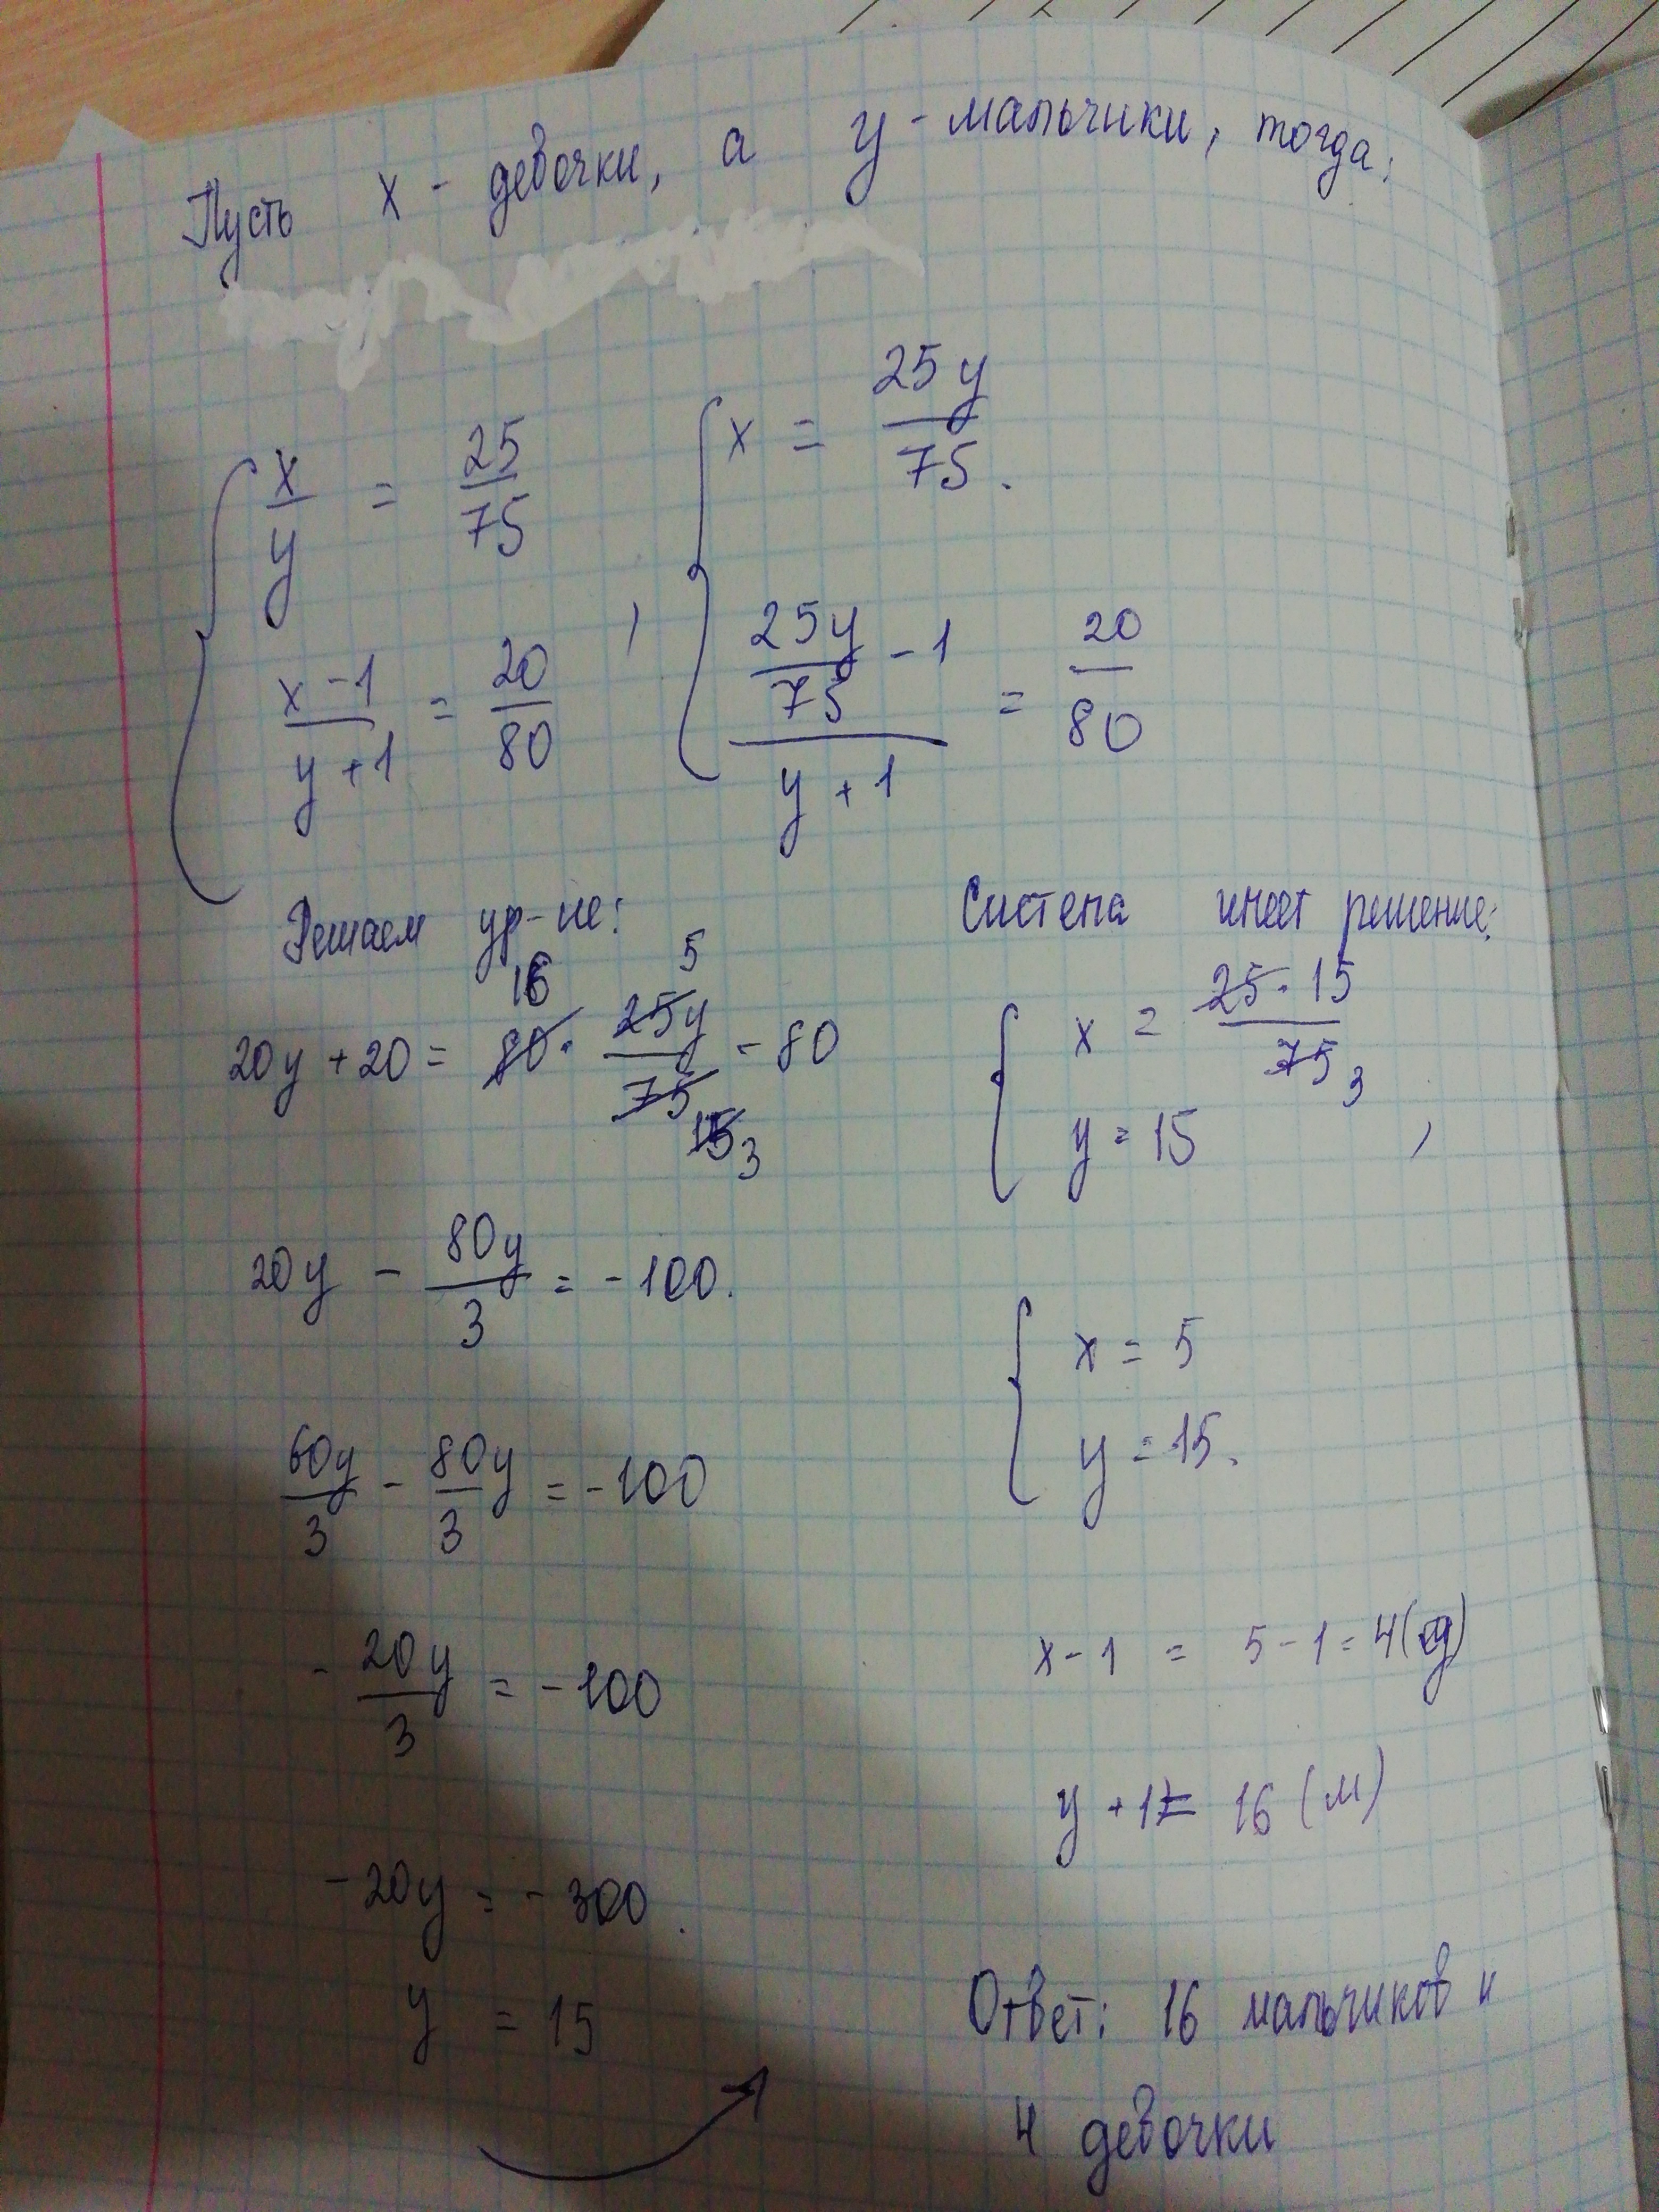 Пусть x - девочки, а y - мальчики, тогда:
{ x/y = 25/75
(x-1)/(y+1) = 20/80 ,
{ x = 25y/75.
(25y/75 - 1)/(y+1) = 20/80
Решаем ур-ие:
20y + 20 = 80 · 25y/75 - 80
16 5 15 3
20y - 80y/3 = -100.
60y/3 - 80/3 y = -100
- 20y/3 = -100
-20y = -300.
y = 15
Система имеет решение:
{ x = 25·15/75 3
y = 15 ,
{ x = 5
y = 15.
x - 1 = 5 - 1 = 4 (д)
y + 1 = 16 (м)
Ответ: 16 мальчиков и
4 девочки